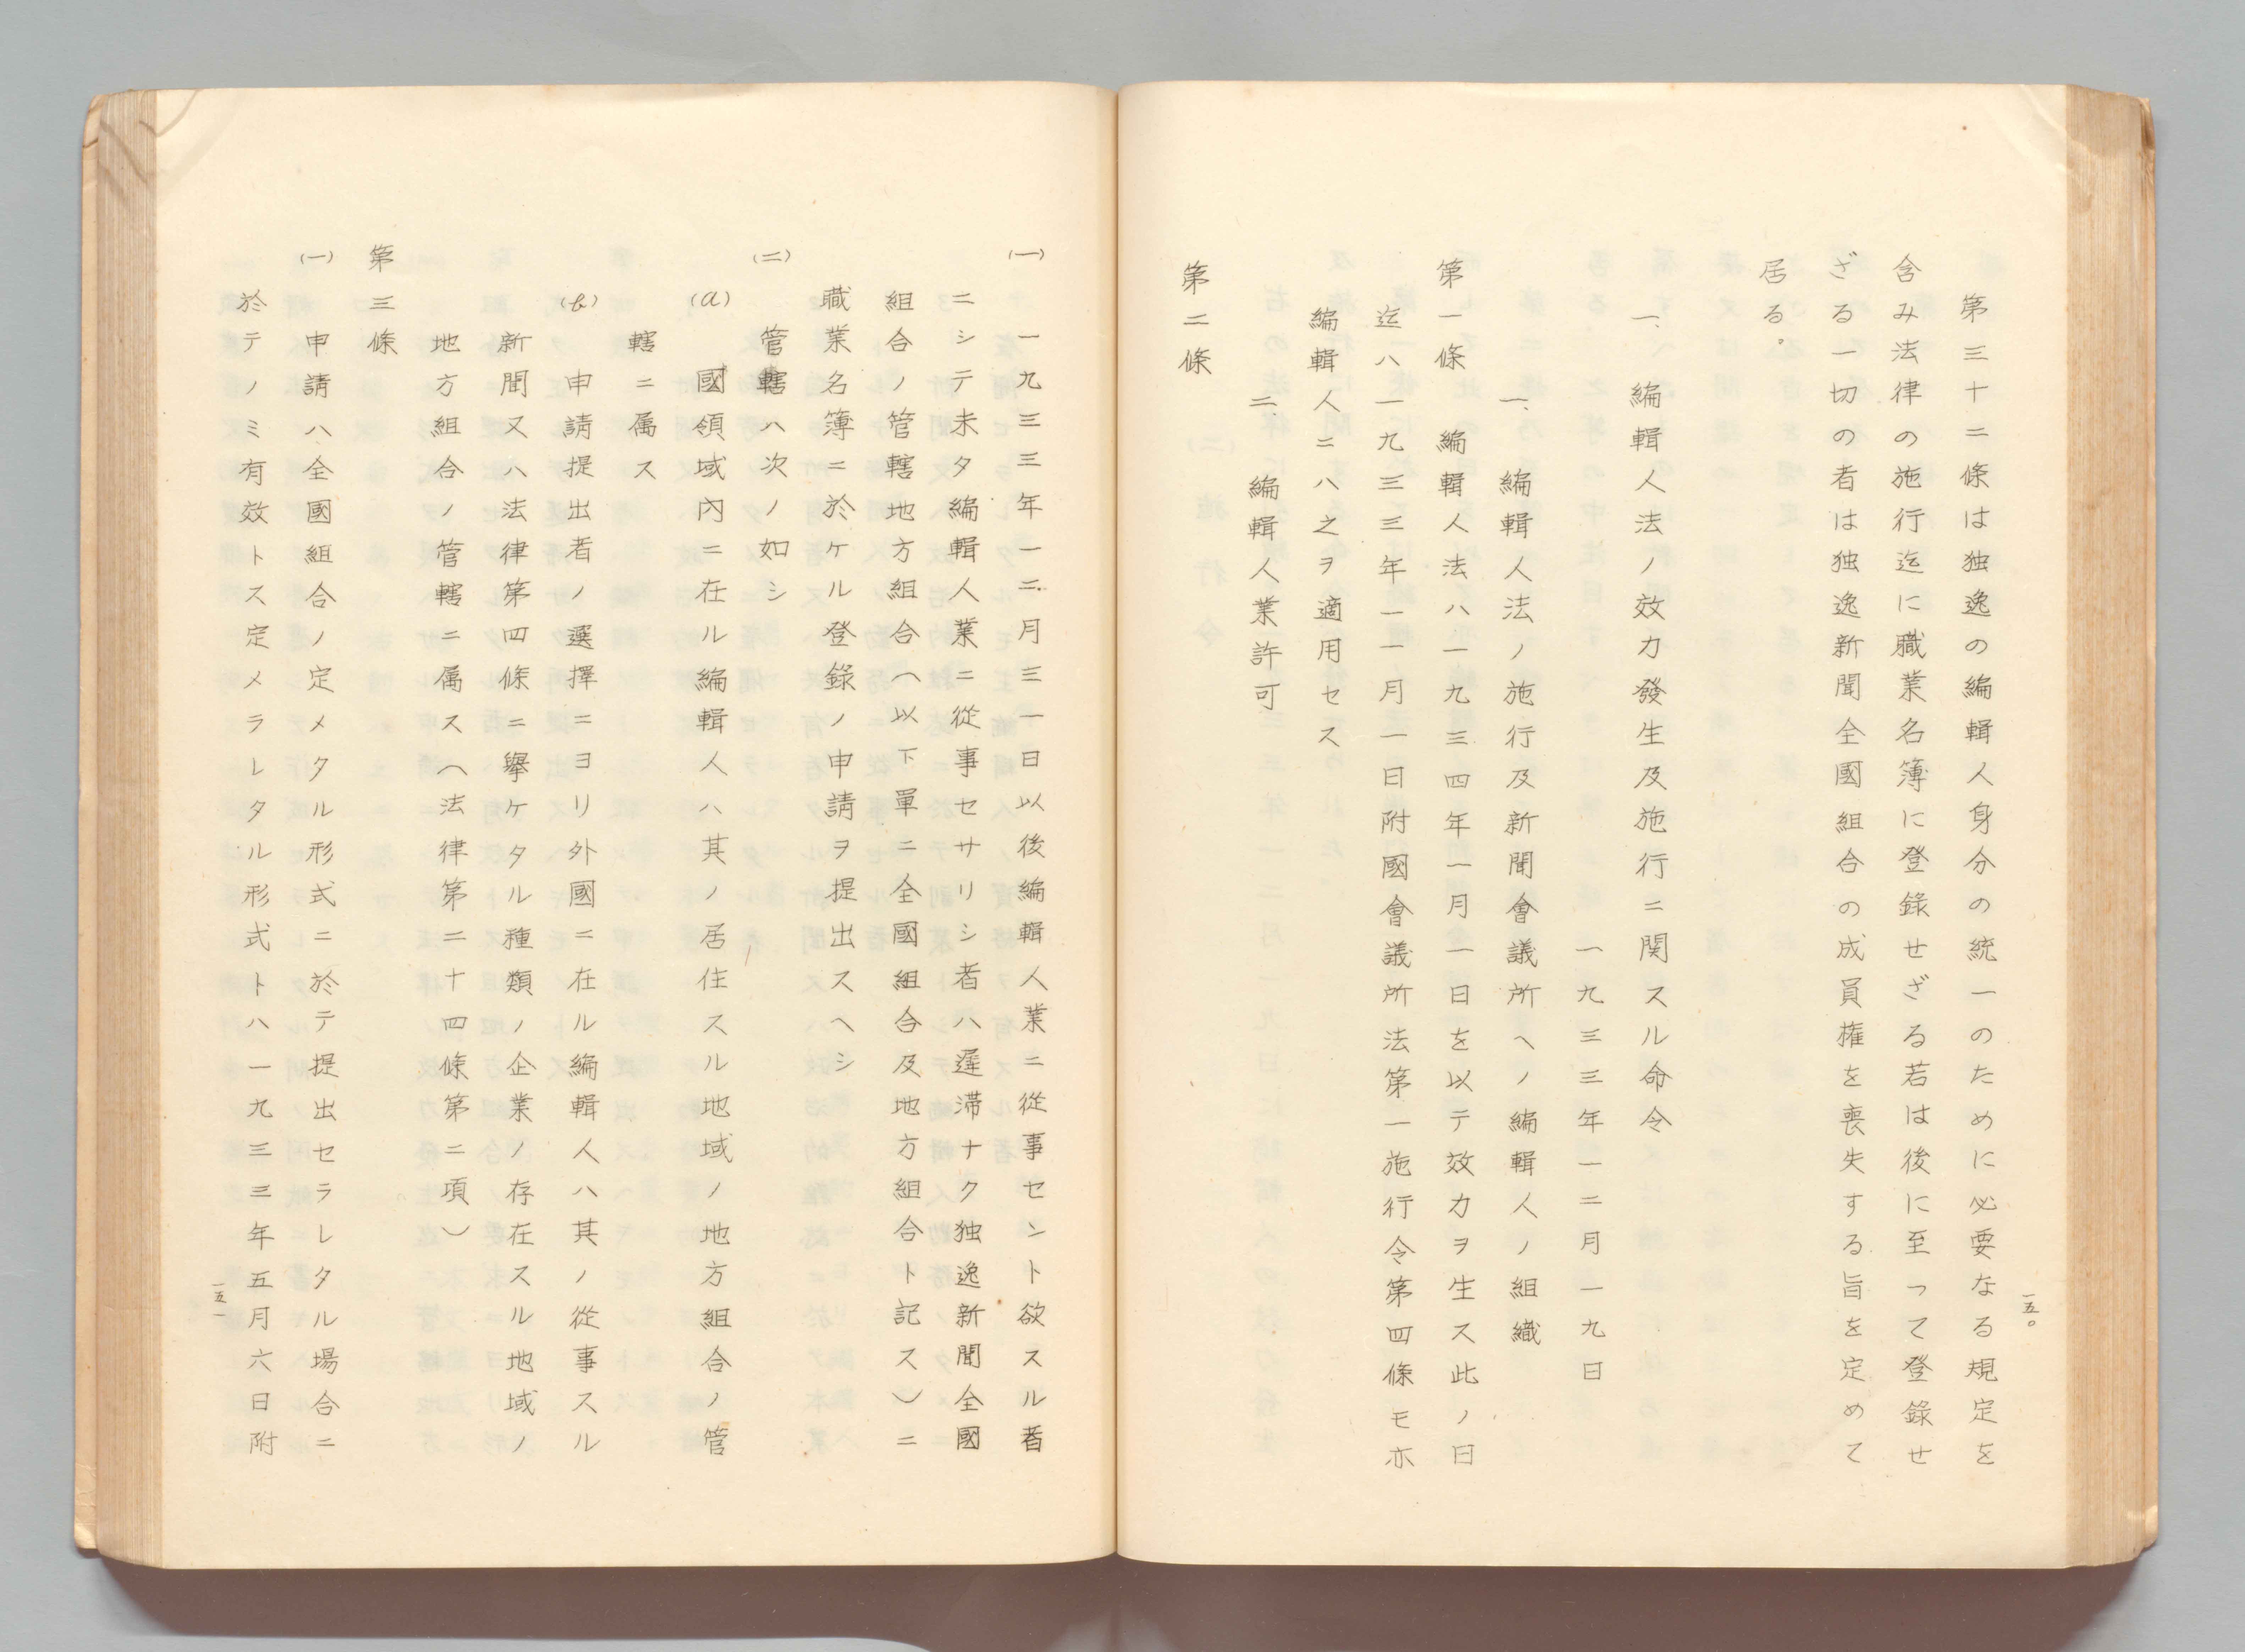 第三十二條は独逸の編輯人身分の統一のために必要なる規定を
含み法律の施行迄に職業名簿に登錄せざる若は後に至って登錄せ
ざる一切の者は独逸新聞全國組合の成員権を喪失する旨を定めて
居る。
一、編輯人法ノ效力發生及施行ニ関スル命令
一九三三年一二月一九日
一、編輯人法ノ施行及新聞會議所ヘノ編輯人ノ組織
第一條　編輯人法ハ一九三四年一月一日を以テ效力ヲ生ス此ノ日
迄ハ一九三三年一一月一日附國會議所法第一施行令第四條モ亦
編輯人ニハ之ヲ適用セス
二、編輯人業許可
第二條
一五〇
(一)　一九三三年一二月三一日以後編輯人業ニ從事セント欲スル者
ニシテ未タ編輯人業ニ從事セサリシ者ハ遲滞ナク独逸新聞全國
組合ノ管轄地方組合(以下單ニ全國組合及地方組合ト記ス)ニ
職業名簿ニ於ケル登錄ノ申請ヲ提出スヘシ
(二)　管轄ハ次ノ如シ
(a)　國領域內ニ在ル編輯人ハ其ノ居住スル地域ノ地方組合ノ管
轄ニ属ス
(b)　申請提出者ノ選擇ニヨリ外國ニ在ル編輯人ハ其ノ從事スル
新聞又ハ法律第四條ニ舉ケタル種類ノ企業ノ存在スル地域ノ
地方組合ノ管轄ニ属ス(法律第二十四條第二項)
第三條
(一)　申請ハ全國組合ノ定メタル形式ニ於テ提出セラレタル場合ニ
於テノミ有效トス定メラレタル形式トハ一九三三年五月六日附
一五一